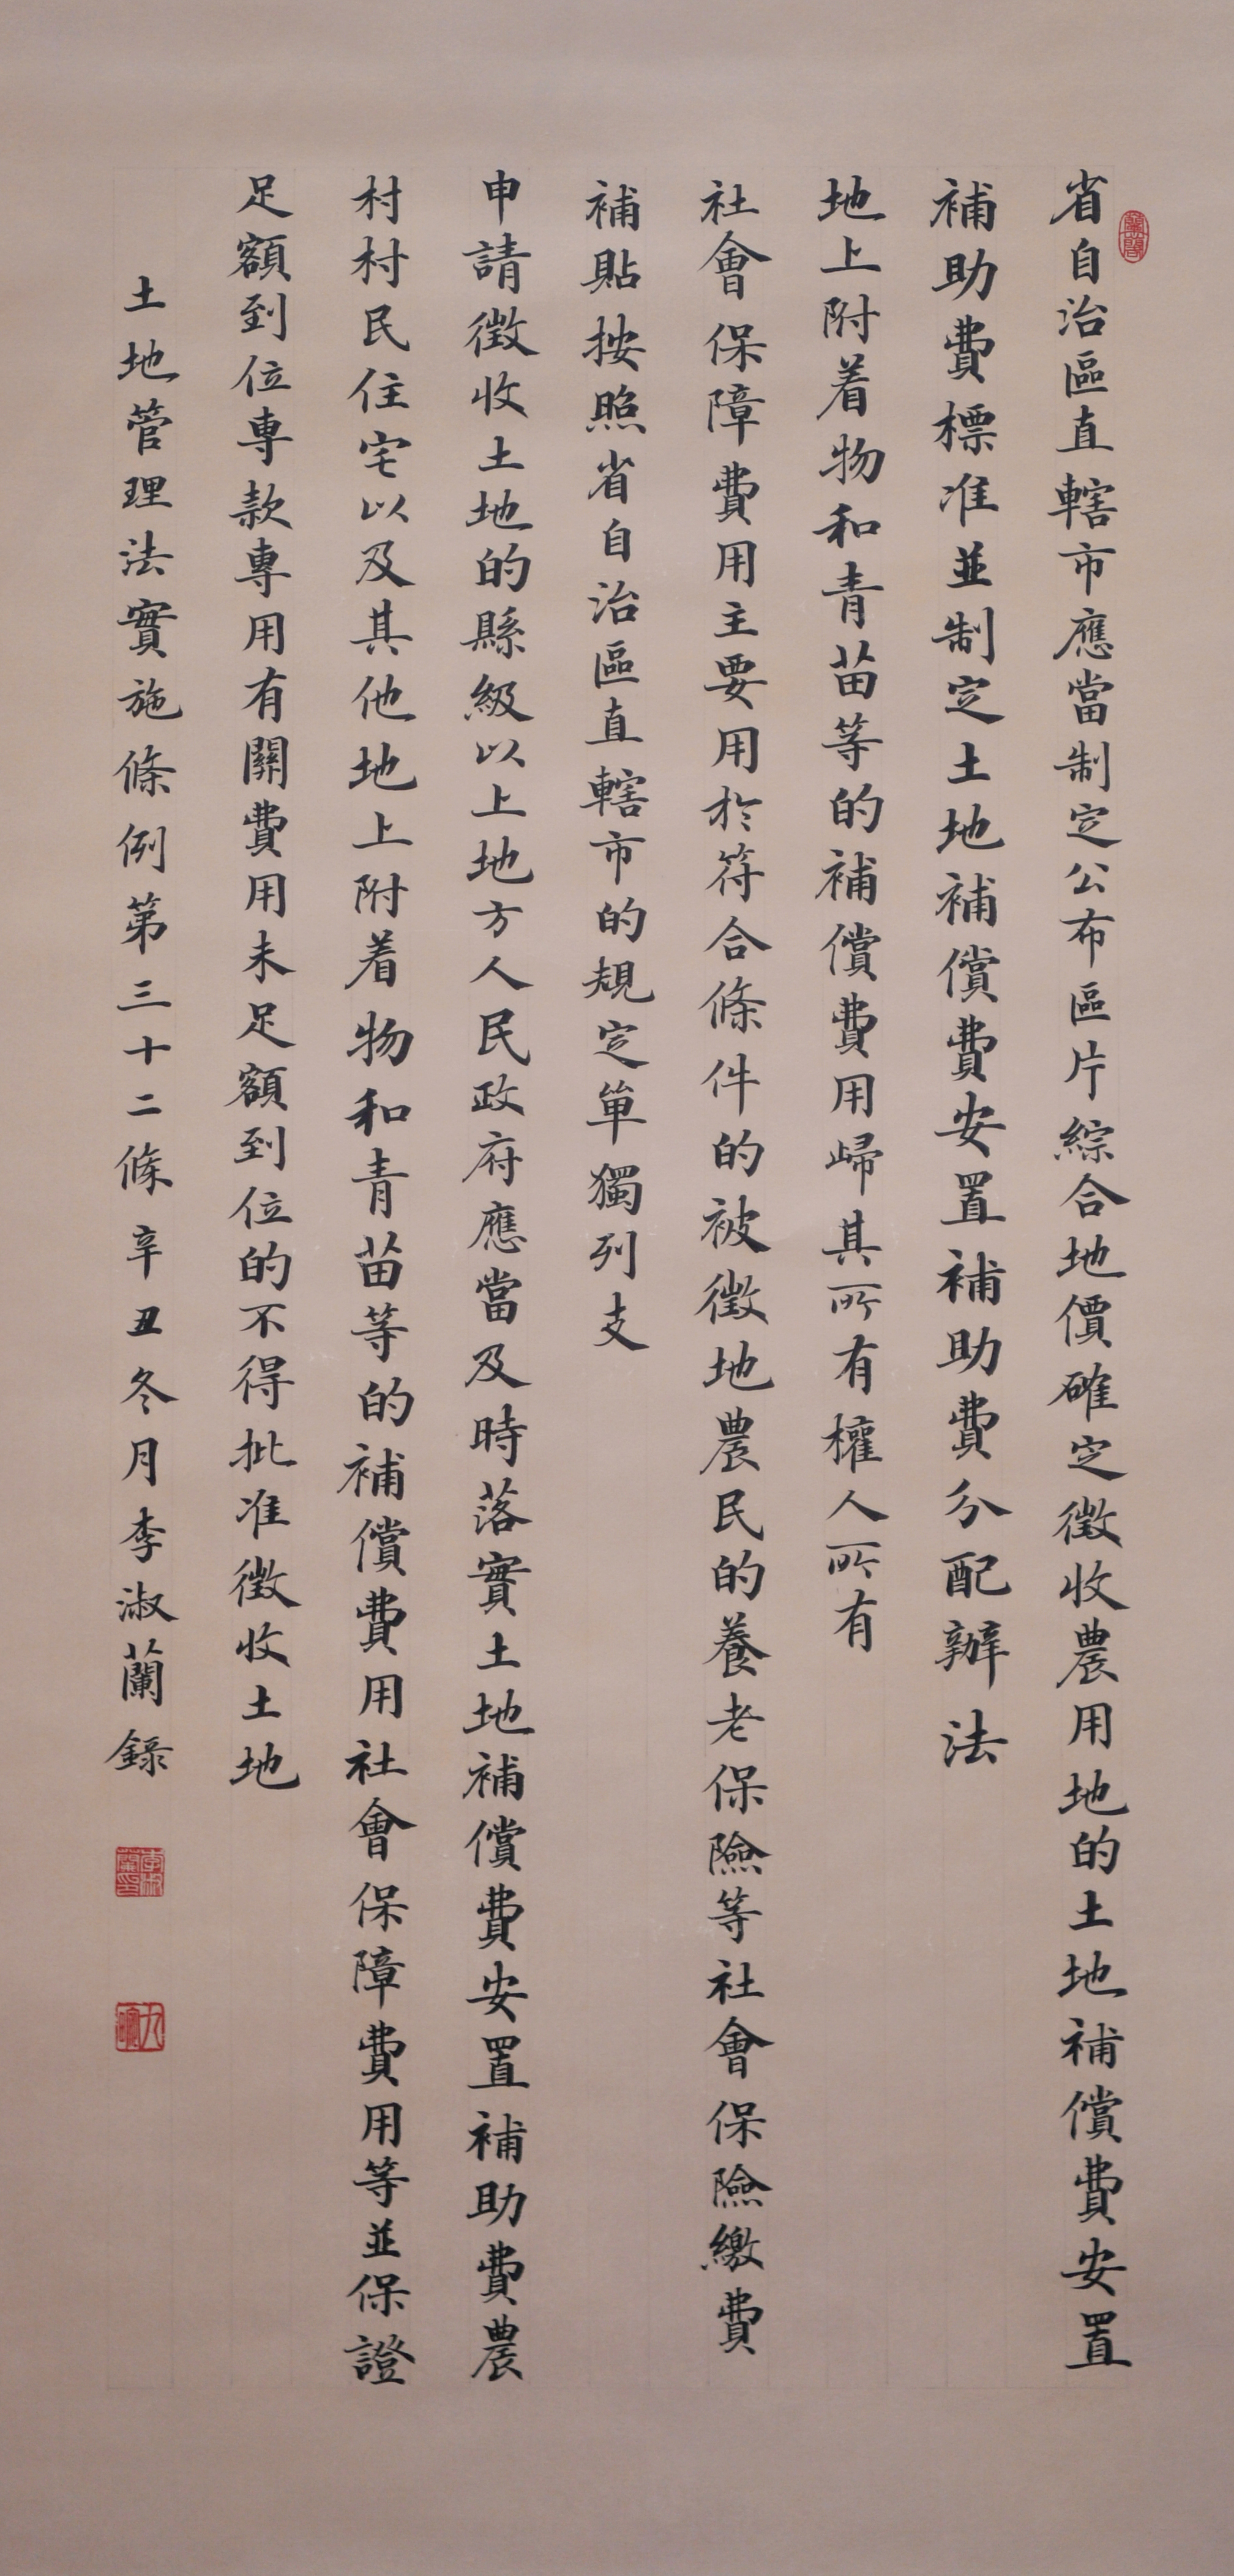 省自治區直轄市應當制定公布區片綜合地價確定徵收農用地的土地補償費安置
補助費標准並制定土地補償費安置補助費分配辦法
地上附着物和青苗等的補償費用歸其所有權人所有
社會保障費用主要用於符合條件的被徵地農民的養老保險等社會保險繳費
補貼按照省自治區直轄市的規定單獨列支
申請徵收土地的縣級以上地方人民政府應當及時落實土地補償費安置補助費農
村村民住宅以及其他地上附着物和青苗等的補償費用社會保障費用等並保證
足額到位專款專用有關費用未足額到位的不得批准徵收土地
土地管理法實施條例第三十二條辛丑冬月李淑蘭錄